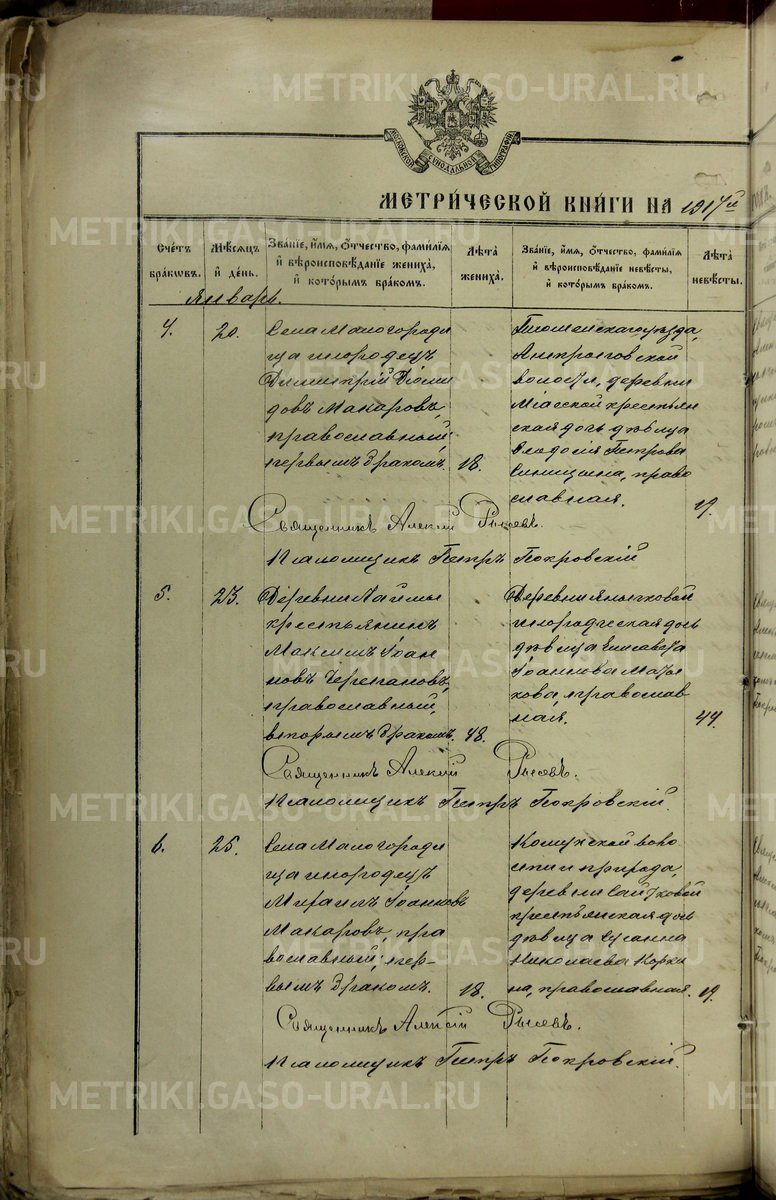 METRIKI.GASO-URAL.RU
МОСКОВСКОЙ СѴНОДАЛЬНОЙ ТИПОГРАФІИ
МЕТРИ́ЧЕСКОЙ КНИ́ГИ НА 1917й
Счетъ браковъ.
Мѣсяцъ и день.
Званіе, имя, отчество, фамилія
и вѣроисповѣданіе жениха,
и которымъ бракомъ.
Лѣта жениха.
Званіе, имя, отчество, фамилія
и вѣроисповѣданіе невѣсты,
и которымъ бракомъ.
Лѣта невѣсты.
Январь.
4.
20.
Села Малогороди
ща инородецъ
Димитрій Діоми
довъ Макаровъ,
православный,
первымъ бракомъ.
18.
Тюменскаго уѣзда,
волости, деревни
крестьян
ская дочь дѣвица
Ѳеодосія Петрова
право
славная.
19.
Священникъ Алексій Рысевъ.
Псаломщикъ Петръ Покровскій
5.
23.
Деревни
крестьянинъ
Максимъ Іоан
новъ Черепановъ,
православный,
вторымъ бракомъ.
48.
Деревни
инородческая дочь
дѣвица Елисавета
Іоаннова
православ
ная.
44.
Священникъ Алексій Рысевъ.
Псаломщикъ Петръ Покровскій.
6.
25.
Села Малогороди
ща инородецъ
Михаилъ Іоанновъ
Макаровъ, пра
вославный, пер-
вымъ бракомъ.
18.
воло
сти
деревни
крестьянская дочь
дѣвица Сусанна
Николаева
православная.
19.
Священникъ Алексій Рысевъ.
Псаломщикъ Петръ Покровскій.